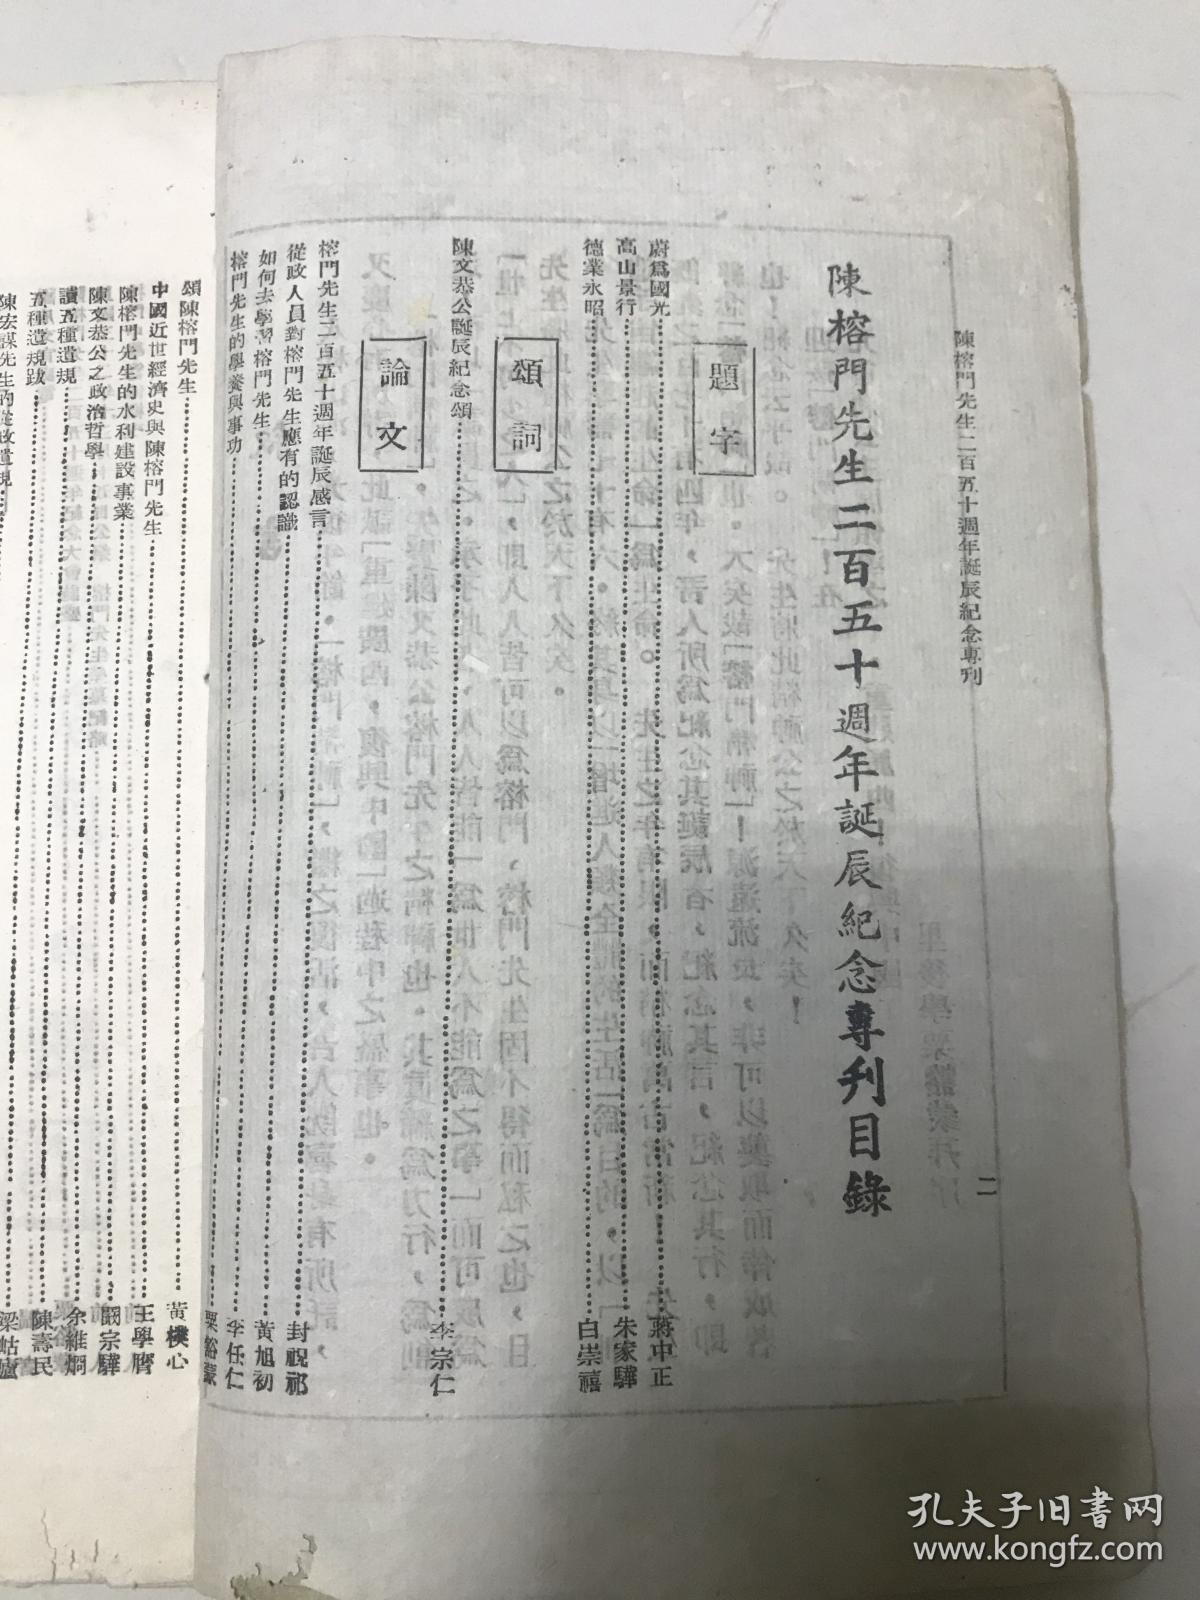 陳榕門先生二百五十週年誕辰紀念專刊
二
陳榕門先生二百五十週年誕辰紀念專刊目錄
題字
蔚為國光 蔣中正
高山景行 朱家驊
德業永昭 白崇禧
頌詞
陳文恭公誕辰紀念頌 李宗仁
論文
榕門先生二百五十週年誕辰感言 封祝祁
從政人員對榕門先生應有的認識 黃旭初
如何去學習榕門先生 李任仁
榕門先生的學養與事功 粟裕蒙
頌陳榕門先生 黃樸心
中國近世經濟史與陳榕門先生 王學膺
陳榕門先生的水利建設事業 闞宗驊
陳文恭公之政治哲學 余維炯
讀五種遺規 陳壽民
五種遺規跋 梁岵廬
陳宏謀先生的從政遺規
孔夫子旧书网
www.kongfz.com